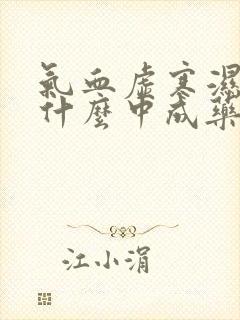 氣血虛寒濕
什麼中成藥
江小涓